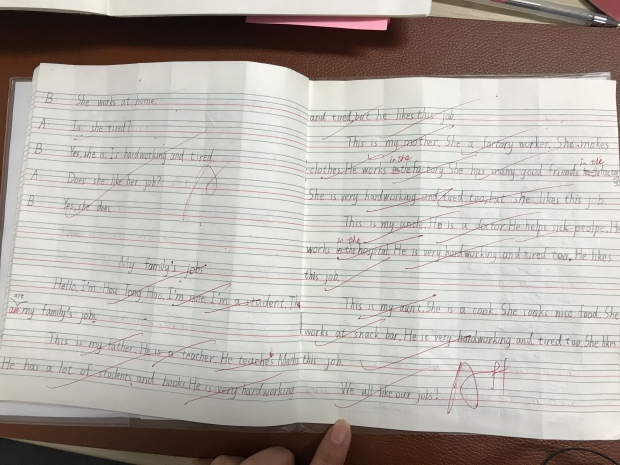 B She works at home.
A: Is she tired?
B Yes, she is. Is hardworking and tired.
A Does she like her job?
B Yes, she does.
My family's job
Hello, I'm Hou Tong Hao. I'm nine. I'm a student. Th
are
my family's jobs
This is my father. He is a teacher. He teaches Maths
He has a lot of students and books. He is very hardworking
and tired, but he likes this job.
This is my mother. She a factory worker. She makes
in the in the
clothes. He works factory. She has many good friends factory
She is very hardworking and tired too, but she likes this job.
This is my uncle. He is a doctor. He helps sick peolpe. He
in the
works hospital. He is very hardworking and tired too. He likes
this job.
This is my aunt. She is a cook. She cooks nice food. She
works at snack bar. He is very hardworking and tired too. She likes
this job.
We all like our jobs!
A
A+